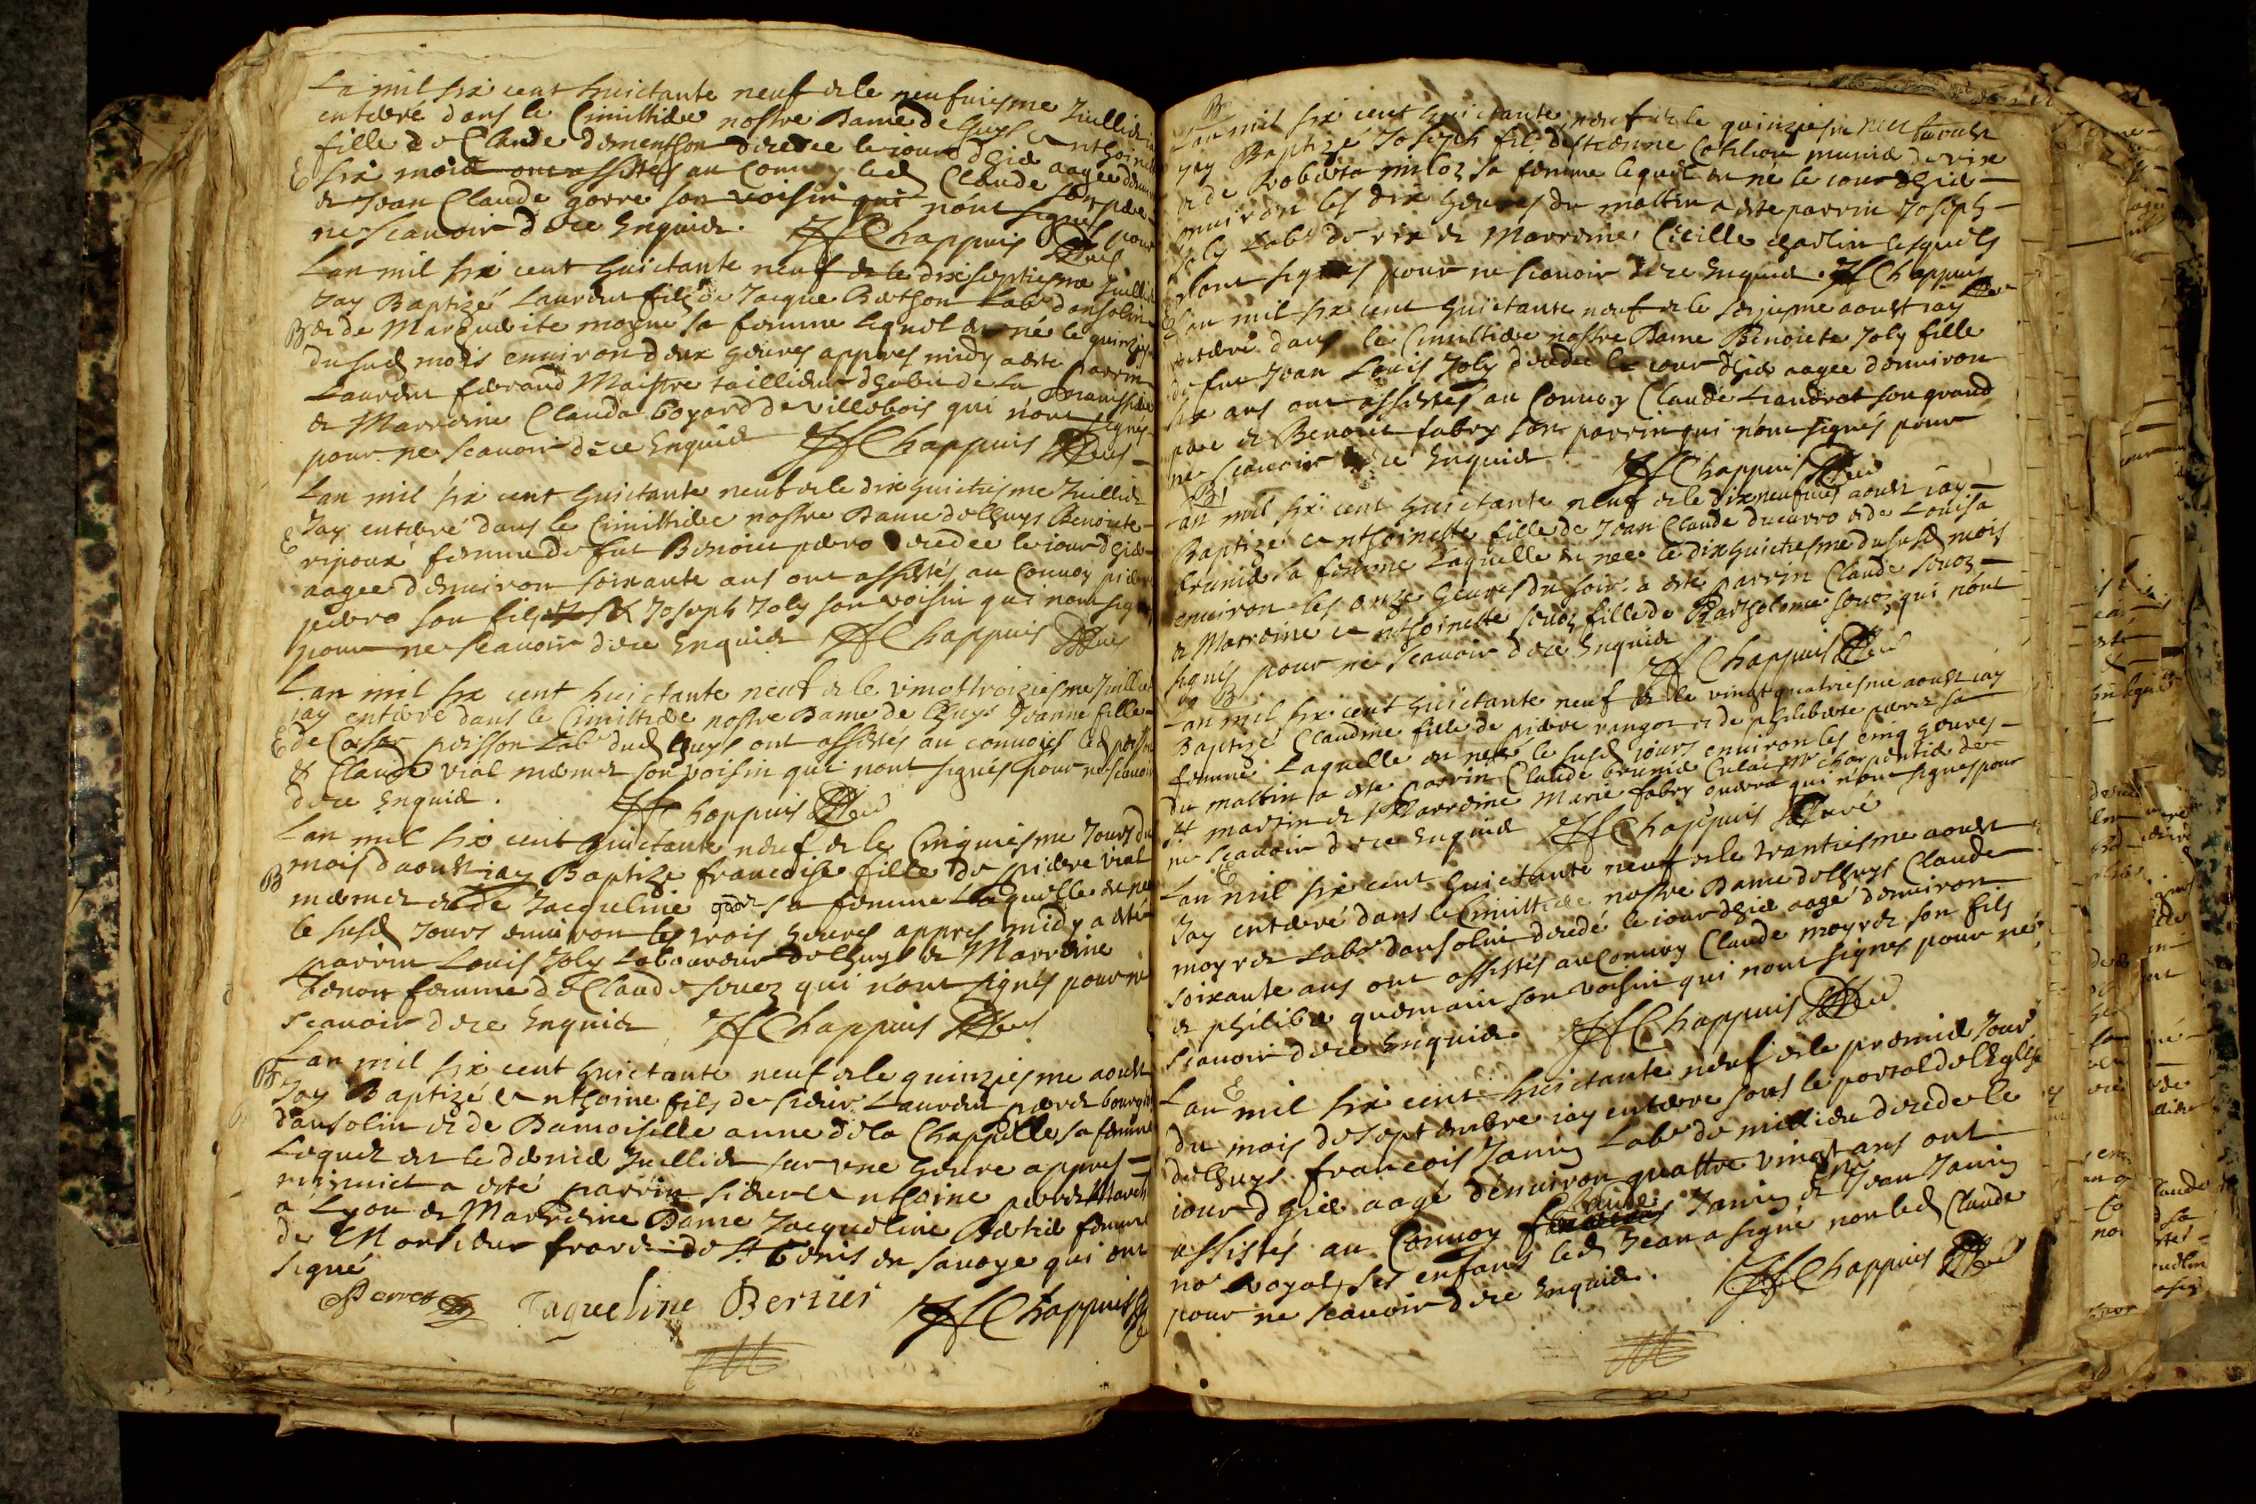 La mil six cent huictante neuf & le neufuiesme Juillet
enterré dans le Cimittiere nostre Dame de Lhuys Anthoinette
fille de Claude domenthon decedee le jour d'hier aagee denuiron
E six mois ont assistés au Conuoy led Claude son pere
& Jean Claude gorre son voisin qui n'ont signés pour
ne scauoir de ce Enquis. JfChappuis Curé
Lan mil six cent huictante neuf & le dixseptiesme Juillet
Jay Baptizé Laurent fils de Jacque Berthon Labr dansolin
B & de Marguerite moyne sa femme lequel est né le quinziesme
du susd mois enuiron deux heures appres midy a esté parrin
Laurent ferrand Maistre taillieur dhabit de La
& Marreine Clauda boyard de villebois qui n'ont signés
pour ne scauoir de ce Enquis JfChappuis Curé
Lan mil six cent huictante neuf & le dix huictiesme Juillet
Jay enterré dans le Cimittiere nostre Dame de Lhuys Benoiste
E ripoux femme de fut Benoict perro decedee le jour d'hier
aagee d'enuiron soixante ans ont assistés au Conuoy pierre
pierro son fils & Joseph Joly son voisin qui nont signés
pour ne scauoir de ce Enquis JfChappuis Curé
Lan mil six cent huictante neuf & le vingttroiziesme Juillet
jay enterré dans le Cimittiere nostre Dame de Lhuys Jeanne fille
E de Cesar poisson Labr dud Lhuys ont assistés au conuois led poisson
& Claude vial mermet son voisin qui nont signés pour ne scauoir
de ce Enquis. JfChappuis Curé
Lan mil six cent huictante neuf & le Cinquiesme Jours du
B mois daoust jay Baptize francoise fille de pierre vial
mermet & de Jacqueline sa femme Laquelle est née
le susd Jours enuiron les trois heures appres midy a esté
parrin Louis Joly Laboureur de Lhuys & Marreine
benoitte femme de Claude souez qui n'ont signés pour ne
scauoir de ce Enquis JfChappuis Curé
Lan mil six cent huictante neuf & le quinziesme aoust
B Jay Baptizé Anthoine fils de sieur Laurent perret bourgeois
dansolin & de Damoiselle anne de la Chappelle sa femme
Lequel est le dernier Juillet sur vne heure appres
minuict a esté parrin sieur Anthoine perret March
a Lyon & Marreine Dame Jacqueline Bertier femme
de Monsieur de St Genis en sauoye qui ont
signé
Perret Jaqueline Bertier JfChappuis Curé
B
Lan mil six cent huictante neuf & le quinziesme aoust
jay Baptizé Joseph fils destienne Catilion munier de rix
& de Roberta milioz sa femme lequel est né le jour d'hier
enuiron les dix heures du mattin a este parrin Joseph
Joly Labr de rix & Marreine Cicille lesquels
n'ont signés pour ne scauoir de ce Enquis. JfChappuis Curé
Lan mil six cent huictante neuf & le seziesme aoust jay
E enterré dans le Cimittiere nostre Dame Benoiste Joly fille
de fut Jean Louis Joly decedee le jour d'hier aagee denuiron
six ans ont assistés au Conuoy Claude Liandrat son grand
pere & Benoict fabry son parrin qui n'ont signés pour
ne scauoir de ce Enquis JfChappuis Curé
B
Lan mil six cent huictante neuf & le dixneufuies aoust jay
Baptize Anthoinette fille de Jean Claude ducarro & de Louisa
brunier sa femme Laquelle est nee le dixhuictiesme du susd mois
enuiron les onze heures du soir a este parrin Claude souoz
& Marreine Anthoinette souoz fille de Bartholome souoz qui n'ont
signés pour ne scauoir de ce Enquis JfChappuis Curé
B
Lan mil six cent huictante neuf & le vingtquatriesme aoust jay
Baptizé Claudine fille de pierre rangot & de philiberte perret sa
femme Laquelle est nee le susd jours enuiron les cinq heures
du mattin a este parrin Claude brunier Mr charpentier de
St martin & Marreine Marie fabry qui n'ont signes pour
ne scauoir de ce Enquis JfChappuis Curé
E
Lan mil six cent huictante neuf & le trantiesme aoust
Jay enterré dans le Cimittiere nostre Dame de Lhuys Claude
moyret Labr dansolin decedé le jour d'hier aagé d'enuiron
soixante ans ont assistés au Conuoy Claude moyret son fils
& philiber quemain son voisin qui nont signes pour ne
scauoir de ce Enquis JfChappuis Curé
E
Lan mil six cent huictante neuf & le premier Jour
du mois de septembre jay enterré sous le portal de lEglise
de Lhuys francois Janin Labr de millieu decede le
jour d'hier aagé denuiron quattre vingt ans ont
assistés au Conuoy Claude Janin & Jean Janin
nore Royal ses enfans led Jean a signé non led Claude
pour ne scauoir de ce Enquis. JfChappuis Curé